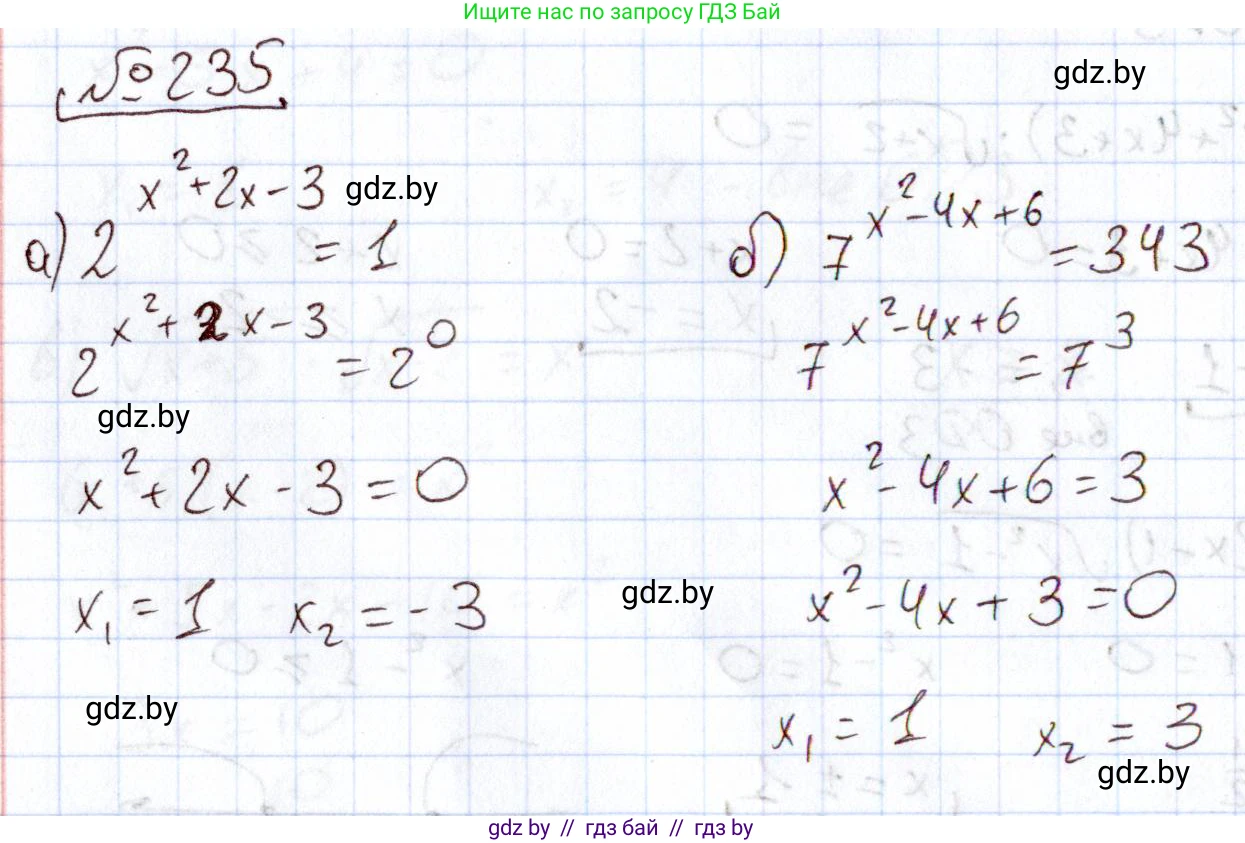 Ищите нас по запросу ГДЗ Бай
№235
gdz.by
а) 2^{x²+2x-3} = 1
gdz.by
2^{x²+2x-3} = 2^0
gdz.by
x²+2x-3=0
x₁=1 x₂=-3
gdz.by
б) 7^{x²-4x+6} = 343
7^{x²-4x+6} = 7^3
x²-4x+6=3
gdz.by
x²-4x+3=0
x₁=1 x₂=3
gdz.by
gdz by // гдз бай // гдз by